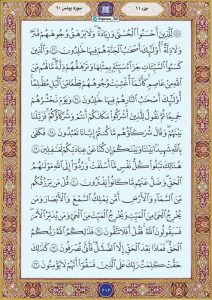 جزء ۱۱
سوره یونس ۱۰
۞ لِّلَّذِينَ أَحْسَنُوا۟ ٱلْحُسْنَىٰ وَزِيَادَةٌ ۖ وَلَا يَرْهَقُ وُجُوهَهُمْ قَتَرٌ
وَلَا ذِلَّةٌ ۚ أُو۟لَٰٓئِكَ أَصْحَٰبُ ٱلْجَنَّةِ ۖ هُمْ فِيهَا خَٰلِدُونَ ٢٦ وَٱلَّذِينَ
كَسَبُوا۟ ٱلسَّيِّـَٔاتِ جَزَآءُ سَيِّئَةٍۭ بِمِثْلِهَا وَتَرْهَقُهُمْ ذِلَّةٌ ۖ مَّا لَهُم مِّنَ
ٱللَّهِ مِنْ عَاصِمٍ ۖ كَأَنَّمَآ أُغْشِيَتْ وُجُوهُهُمْ قِطَعًا مِّنَ ٱلَّيْلِ مُظْلِمًا ۚ
أُو۟لَٰٓئِكَ أَصْحَٰبُ ٱلنَّارِ ۖ هُمْ فِيهَا خَٰلِدُونَ ٢٧ وَيَوْمَ نَحْشُرُهُمْ
جَمِيعًا ثُمَّ نَقُولُ لِلَّذِينَ أَشْرَكُوا۟ مَكَانَكُمْ أَنتُمْ وَشُرَكَآؤُكُمْ ۚ فَزَيَّلْنَا
بَيْنَهُمْ ۖ وَقَالَ شُرَكَآؤُهُم مَّا كُنتُمْ إِيَّانَا تَعْبُدُونَ ٢٨ فَكَفَىٰ
بِٱللَّهِ شَهِيدًۢا بَيْنَنَا وَبَيْنَكُمْ إِن كُنَّا عَنْ عِبَادَتِكُمْ لَغَٰفِلِينَ ٢٩
هُنَالِكَ تَبْلُوا۟ كُلُّ نَفْسٍ مَّآ أَسْلَفَتْ ۚ وَرُدُّوٓا۟ إِلَى ٱللَّهِ مَوْلَىٰهُمُ
ٱلْحَقِّ ۖ وَضَلَّ عَنْهُم مَّا كَانُوا۟ يَفْتَرُونَ ٣٠ قُلْ مَن يَرْزُقُكُم
مِّنَ ٱلسَّمَآءِ وَٱلْأَرْضِ أَمَّن يَمْلِكُ ٱلسَّمْعَ وَٱلْأَبْصَٰرَ وَمَن
يُخْرِجُ ٱلْحَىَّ مِنَ ٱلْمَيِّتِ وَيُخْرِجُ ٱلْمَيِّتَ مِنَ ٱلْحَىِّ وَمَن يُدَبِّرُ ٱلْأَمْرَ ۚ
فَسَيَقُولُونَ ٱللَّهُ ۚ فَقُلْ أَفَلَا تَتَّقُونَ ٣١ فَذَٰلِكُمُ ٱللَّهُ رَبُّكُمُ
ٱلْحَقُّ ۖ فَمَاذَا بَعْدَ ٱلْحَقِّ إِلَّا ٱلضَّلَٰلُ ۖ فَأَنَّىٰ تُصْرَفُونَ ٣٢ كَذَٰلِكَ
حَقَّتْ كَلِمَتُ رَبِّكَ عَلَى ٱلَّذِينَ فَسَقُوٓا۟ أَنَّهُمْ لَا يُؤْمِنُونَ ٣٣
۲۱۲